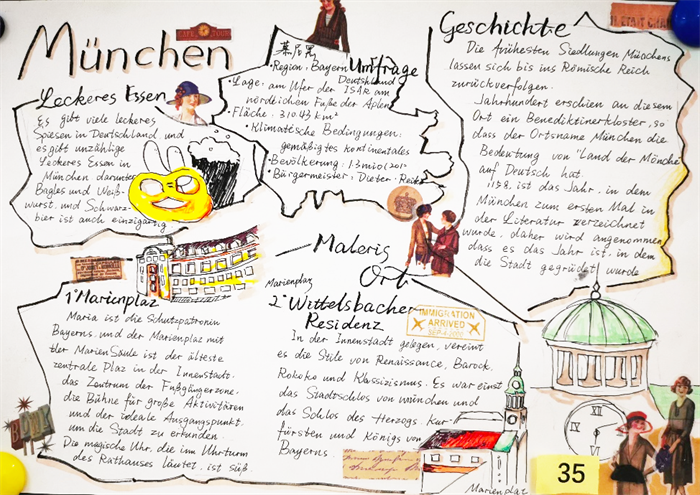 München
Leckeres Essen
Es gibt viele leckeres
Spiesen in Deutschland, und
es gibt unzählige
Leckeres Essen in
München darunter
Bagles und Weiß-
wurst, und Schwarz-
bier ist auch einzigartig
慕尼黑
Umfrage
·Region: Bayern
Deutschland
·Lage: am Ufer der ISAR am
nördlichen Fuße der Aplen
·Fläche: 310.43 km²
·Klimatische Bedingungen:
gemäßigtes kontinentales
·Bevölkerung:
·Bürgermeister: Dieter
Geschichte
Die frühesten Siedlungen Münchens
lassen sich bis ins Römische Reich
zurückverfolgen.
Jahrhundert erschien an diesem
Ort ein Benediktinerkloster, so
dass der Ortsname München die
Bedeutung von "Land der Mönche"
auf Deutsch hat.
1158. ist das Jahr, in dem
München zum ersten Mal in
der Literatur verzeichnet
wurde, daher wird angenommen,
dass es das Jahr ist, in dem
die Stadt gegrüdet wurde
Maleris
Ort
1 Marienplaz
Maria ist die Schutzpatronin
Bayerns, und der Marienplaz mit
der MarienSäule ist der älteste
zentrale Plaz in der Innenstadt.
das Zentrum der Fußgängerzone.
die Bühne für große Aktivitären
und der ideale Ausgangspunkt.
um die Stadt zu erkunden.
Die magische Uhr, die im Uhrturm
des Rathauses läutet, ist süß
Marienplaz
2 Wittelsbacher
Residenz
In der Innenstadt gelegen, vereint
es die Stile von Renaissance, Barock,
Rokoko und Klassizismus. Es war einst
das Stadtschlos von München und
das Schlos des Herzogs. Kur-
fürsten und Königs von
Bayerns.
IMMIGRATION
ARRIVED
XII
III
VI
IX
Marienplaz
35